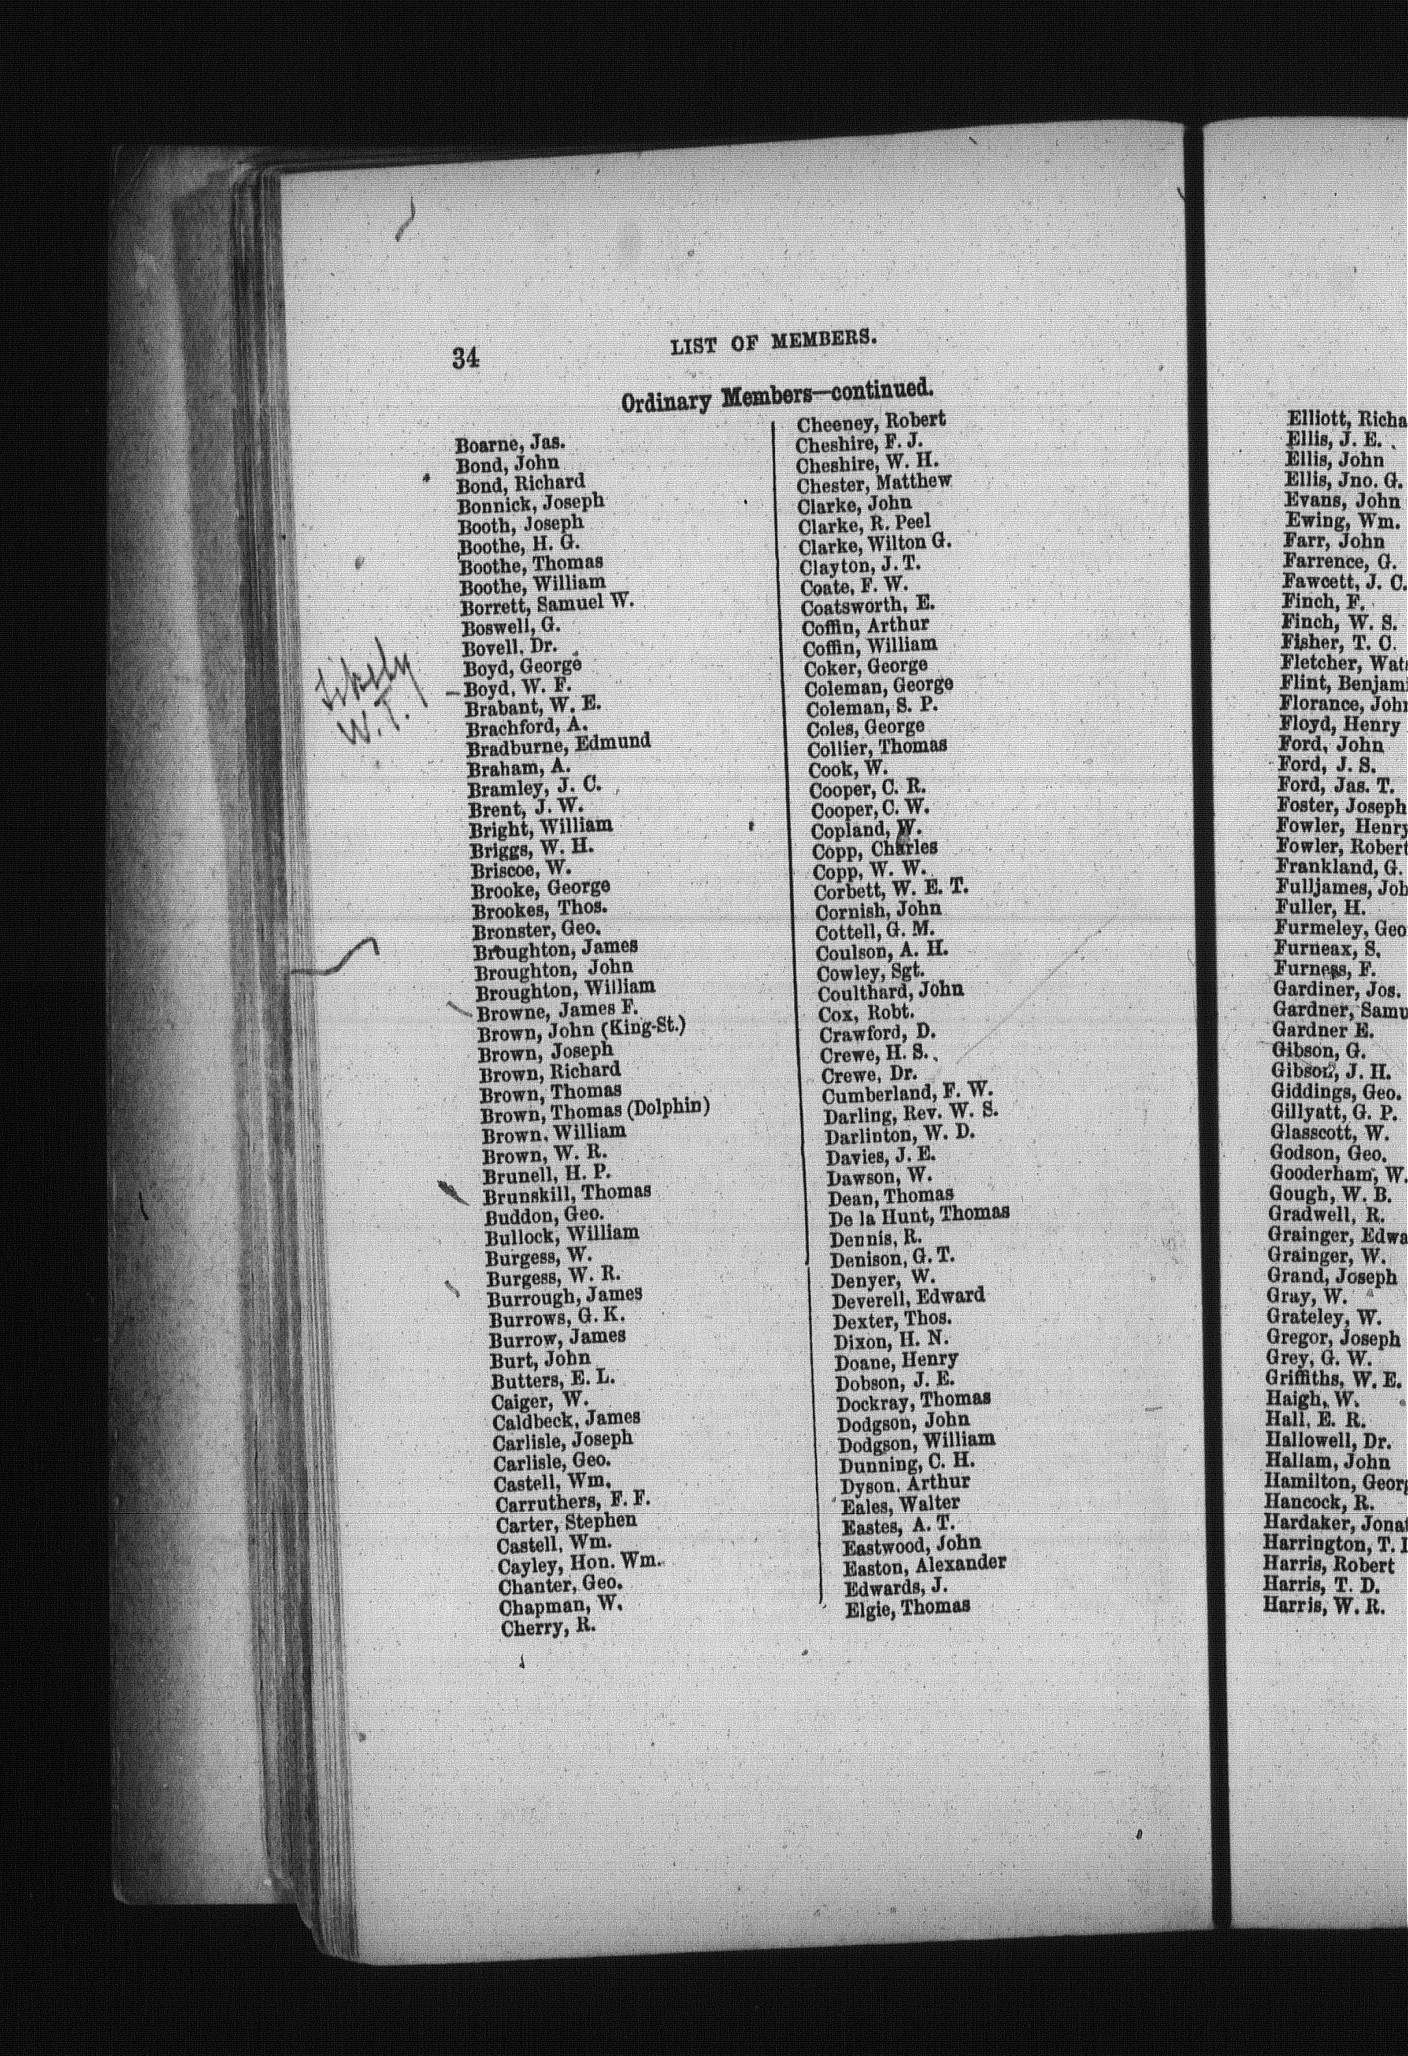 34
LIST OF MEMBERS.
Ordinary Members—continued.
Boarne, Jas.
Bond, John
Bond, Richard
Bonnick, Joseph
Booth, Joseph
Boothe, H. G.
Boothe, Thomas
Boothe, William
Borrett, Samuel W.
Boswell, G.
Bovell, Dr.
Boyd, George
Boyd, W. F.
Brabant, W. E.
Brachford, A.
Bradburne, Edmund
Braham, A.
Bramley, J. C.
Brent, J. W.
Bright, William
Briggs, W. H.
Briscoe, W.
Brooke, George
Brookes, Thos.
Bronster, Geo.
Broughton, James
Broughton, John
Broughton, William
Browne, James F.
Brown, John (King-St.)
Brown, Joseph
Brown, Richard
Brown, Thomas
Brown, Thomas (Dolphin)
Brown, William
Brown, W. R.
Brunell, H. P.
Brunskill, Thomas
Buddon, Geo.
Bullock, William
Burgess, W.
Burgess, W. R.
Burrough, James
Burrows, G. K.
Burrow, James
Burt, John
Butters, E. L.
Caiger, W.
Caldbeck, James
Carlisle, Joseph
Carlisle, Geo.
Castell, Wm.
Carruthers, F. F.
Carter, Stephen
Castell, Wm.
Cayley, Hon. Wm.
Chanter, Geo.
Chapman, W.
Cherry, R.
likely
W. T.
Cheeney, Robert
Cheshire, F. J.
Cheshire, W. H.
Chester, Matthew
Clarke, John
Clarke, R. Peel
Clarke, Wilton G.
Clayton, J. T.
Coate, F. W.
Coatsworth, E.
Coffin, Arthur
Coffin, William
Coker, George
Coleman, George
Coleman, S. P.
Coles, George
Collier, Thomas
Cook, W.
Cooper, C. R.
Cooper, C. W.
Copland, W.
Copp, Charles
Copp, W. W.
Corbett, W. E. T.
Cornish, John
Cottell, G. M.
Coulson, A. H.
Cowley, Sgt.
Coulthard, John
Cox, Robt.
Crawford, D.
Crewe, H. S.
Crewe, Dr.
Cumberland, F. W.
Darling, Rev. W. S.
Darlinton, W. D.
Davies, J. E.
Dawson, W.
Dean, Thomas
De la Hunt, Thomas
Dennis, R.
Denison, G. T.
Denyer, W.
Deverell, Edward
Dexter, Thos.
Dixon, H. N.
Doane, Henry
Dobson, J. E.
Dockray, Thomas
Dodgson, John
Dodgson, William
Dunning, C. H.
Dyson, Arthur
Eales, Walter
Eastes, A. T.
Eastwood, John
Easton, Alexander
Edwards, J.
Elgie, Thomas
Elliott, Richa
Ellis, J. E.
Ellis, John
Ellis, Jno. G.
Evans, John
Ewing, Wm.
Farr, John
Farrence, G.
Fawcett, J. C.
Finch, F.
Finch, W. S.
Fisher, T. C.
Fletcher, Wats
Flint, Benjami
Florance, John
Floyd, Henry
Ford, John
Ford, J. S.
Ford, Jas. T.
Foster, Joseph
Fowler, Henry
Fowler, Robert
Frankland, G.
Fulljames, Joh
Fuller, H.
Furmeley, Geo
Furneax, S.
Furness, F.
Gardiner, Jos.
Gardner, Samu
Gardner E.
Gibson, G.
Gibson, J. H.
Giddings, Geo.
Gillyatt, G. P.
Glasscott, W.
Godson, Geo.
Gooderham, W.
Gough, W. B.
Gradwell, R.
Grainger, Edwa
Grainger, W.
Grand, Joseph
Gray, W.
Grateley, W.
Gregor, Joseph
Grey, G. W.
Griffiths, W. E.
Haigh, W.
Hall, E. R.
Hallowell, Dr.
Hallam, John
Hamilton, Georg
Hancock, R.
Hardaker, Jonat
Harrington, T. I
Harris, Robert
Harris, T. D.
Harris, W. R.